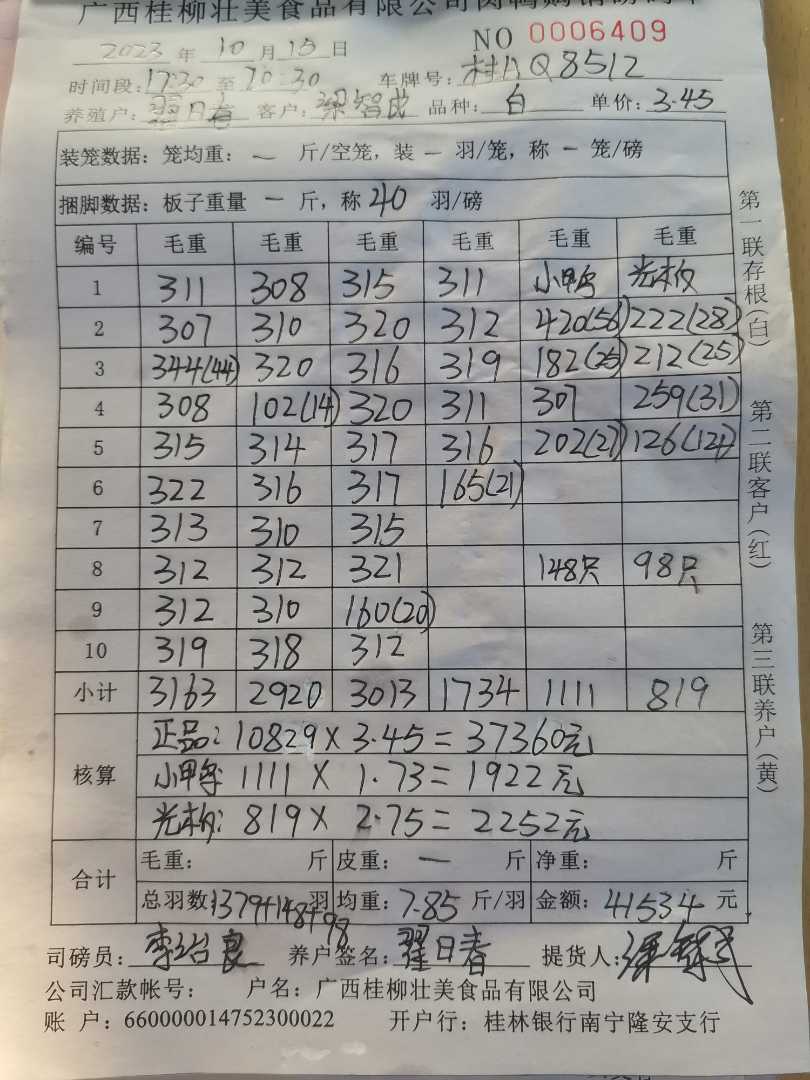 广西桂柳壮美食品有限公司肉鸭购销磅码单
NO 0006409
2023 年 10 月 15 日
时间段: 17:30 至 20:30 车牌号: 桂AQ8512
养殖户: 翟日春 客户: 梁智成 品种: 白 单价: 3.45
装笼数据: 笼均重: 一 斤/空笼, 装 一 羽/笼, 称 一 笼/磅
捆脚数据: 板子重量 一 斤, 称 40 羽/磅
编号 毛重 毛重 毛重 毛重 毛重 毛重
1 311 308 315 311 小甲字 光板
2 307 310 320 312 420(56) 222(28)
3 344(44) 320 316 319 182(25) 212(25)
4 308 102(14) 320 311 307 259(31)
5 315 314 317 316 202(27) 126(124)
6 322 316 317 165(21)
7 313 310 315
8 312 312 321 148只 98只
9 312 310 160(20)
10 319 318 312
小计 3163 2920 3013 1734 1111 819
核算
正品: 10829×3.45=37360元
小甲字: 1111×1.73=1922元
光板: 819×2.75=2252元
合计
毛重: 斤 皮重: 一 斤 净重: 斤
总羽数: 1379+148+98 羽 均重: 7.85 斤/羽 金额: 41534 元
司磅员: 李 良 养户签名: 翟日春 提货人: 梁
公司汇款帐号: 户名: 广西桂柳壮美食品有限公司
账 户: 660000014752300022 开户行: 桂林银行南宁隆安支行
第一联存根(白)
第二联客户(红)
第三联养户(黄)